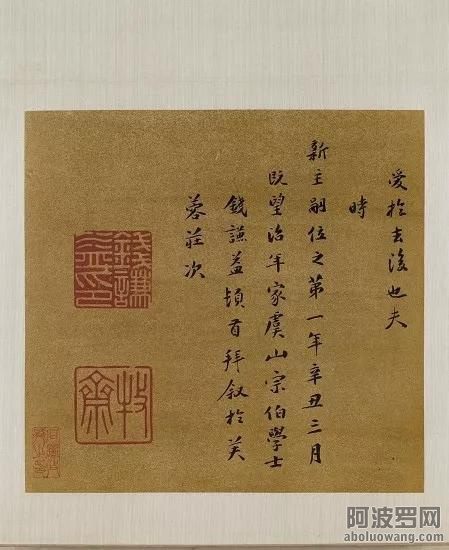 愛於去後也夫
時
新主嗣位之第一年辛丑三月
既望治年家虞山宗伯學士
錢謙益頓首拜叙於芙
蓉莊次
錢謙益印
牧齋
阿波罗网
aboluowang.com